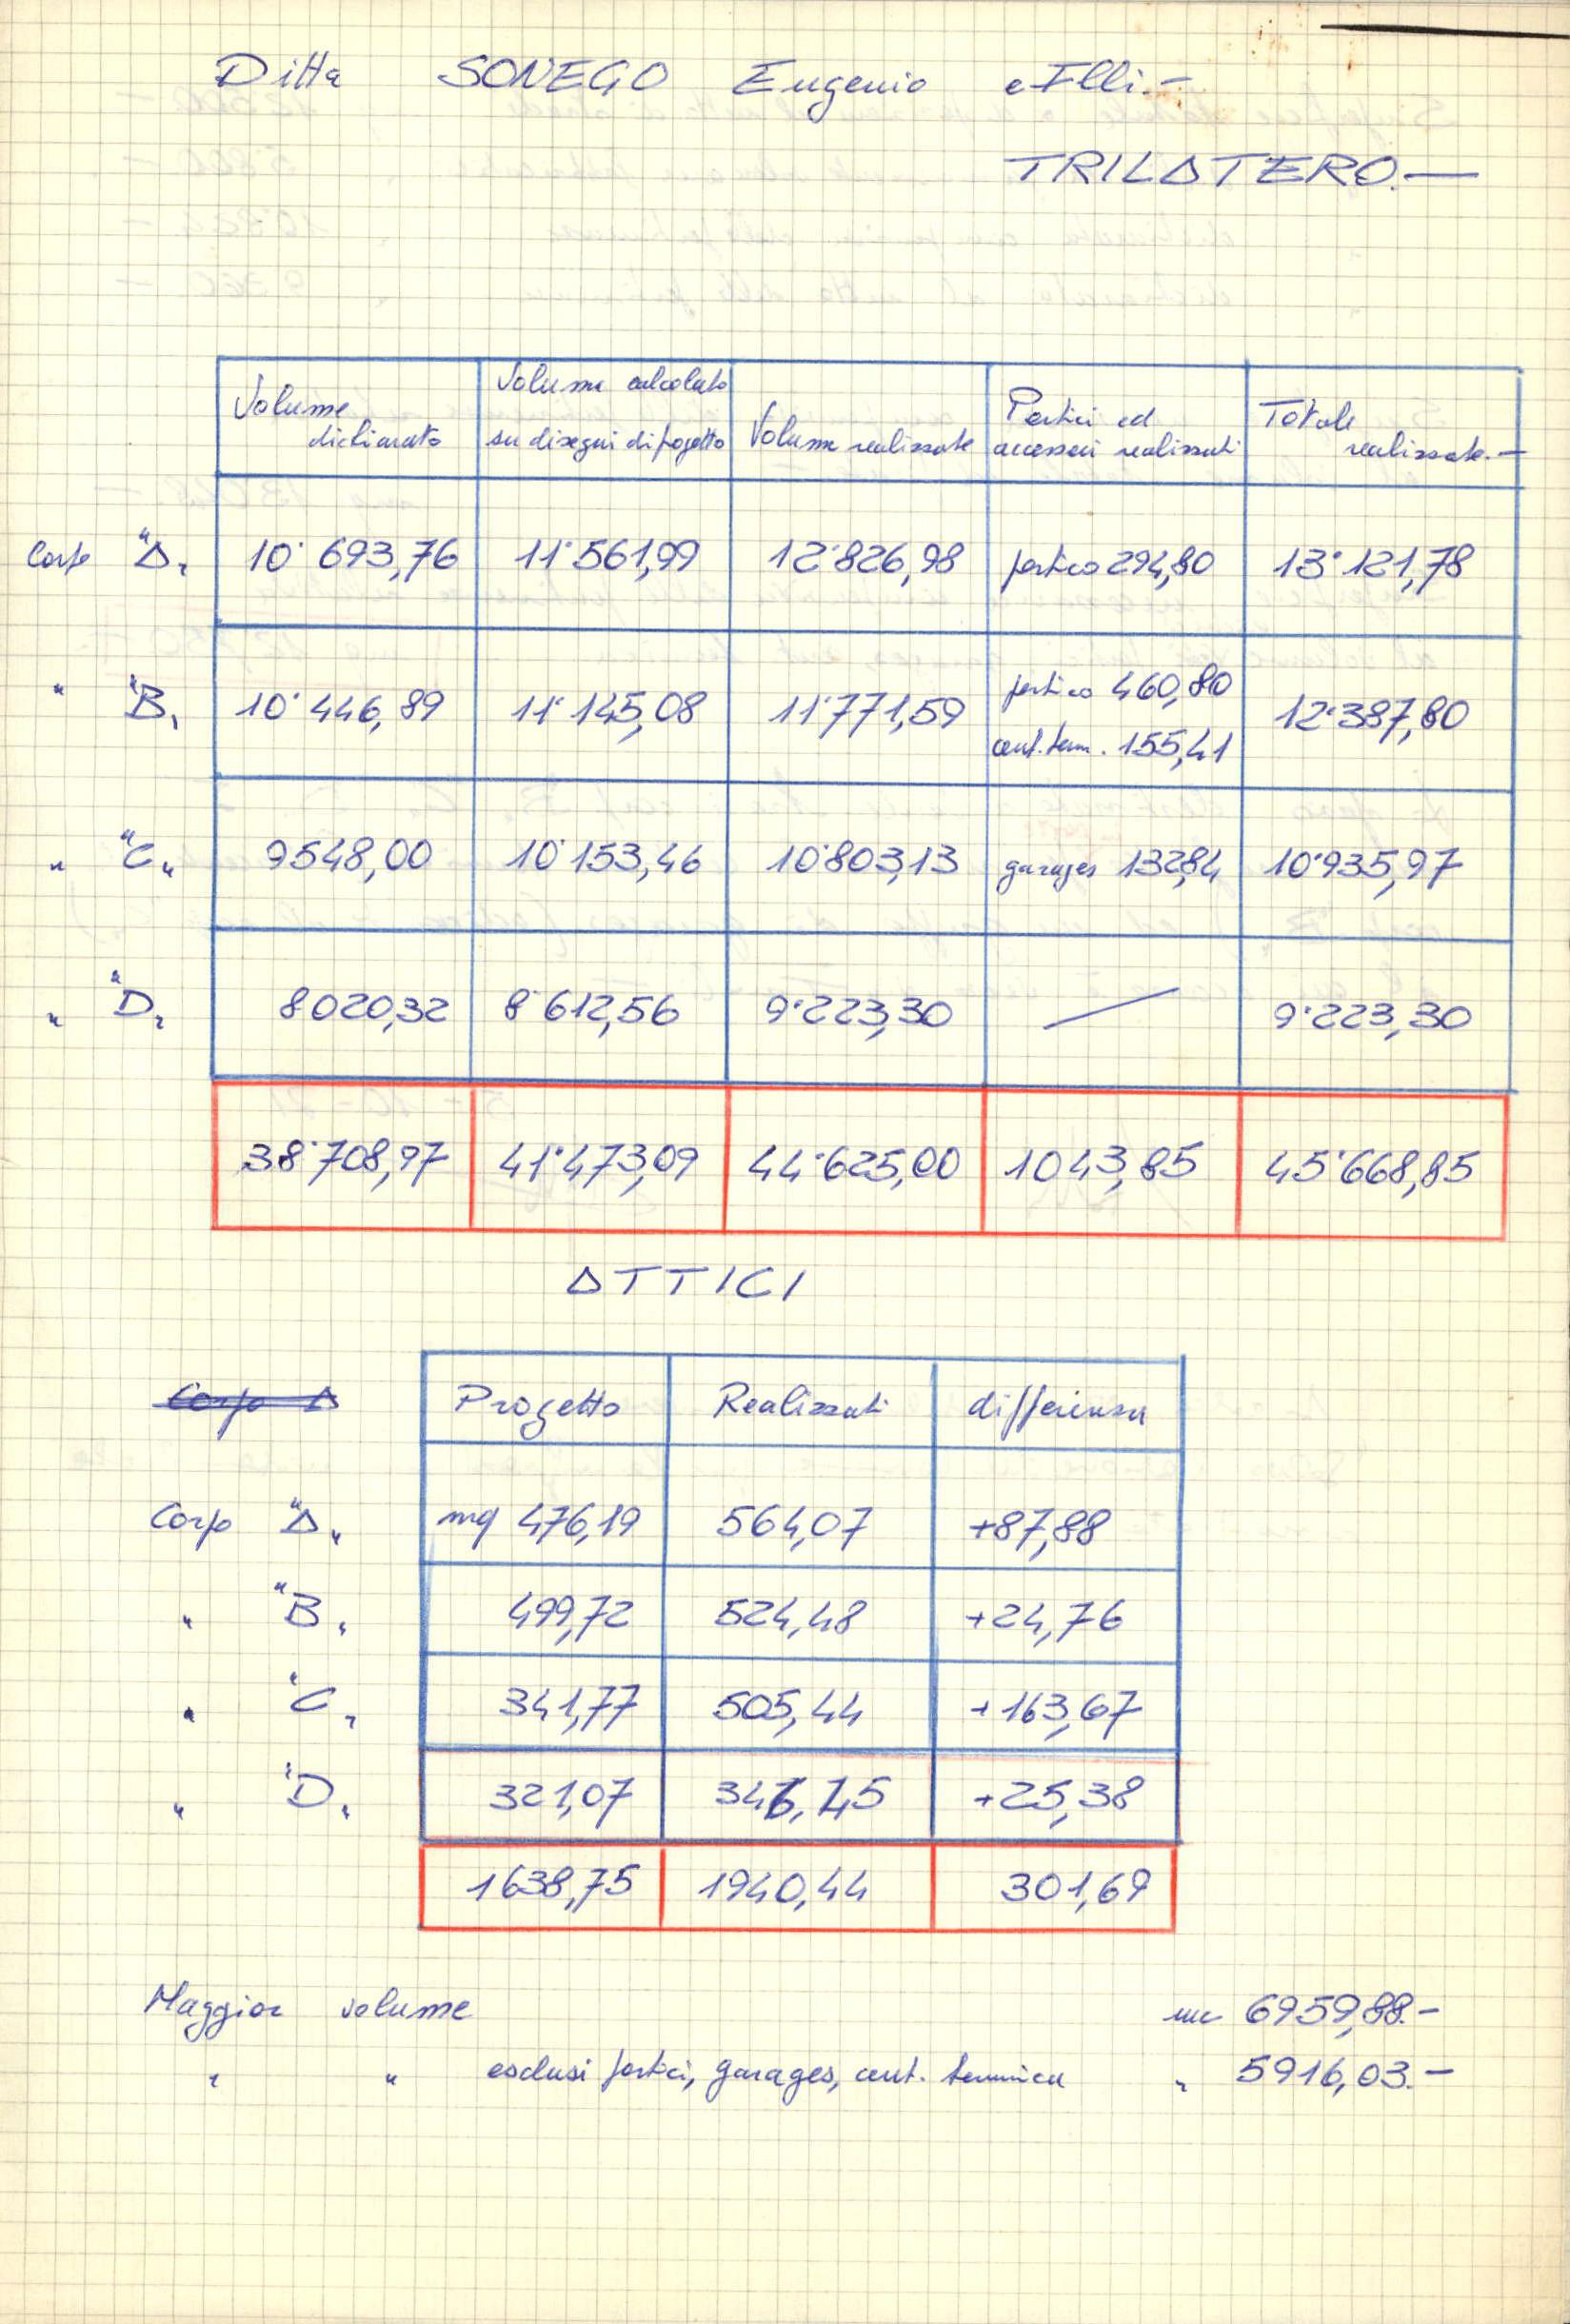 Ditta SONEGO Eugenio e Flli.-
TRILATERO.-
Volume dichiarato | Volume calcolato su disegni di progetto | Volume realizzato | Portici ed accessori realizzati | Totale realizzato.-
Corpo "A" | 10˙693,76 | 11˙561,99 | 12˙826,98 | portico 294,80 | 13˙121,78
" "B" | 10˙446,89 | 11˙145,08 | 11˙771,59 | portico 460,80 cent. term. 155,41 | 12˙387,80
" "C" | 9548,00 | 10˙153,46 | 10˙803,13 | garages 132,84 | 10˙935,97
" "D" | 8020,32 | 8˙612,56 | 9˙223,30 | — | 9˙223,30
38˙708,97 | 41˙473,09 | 44˙625,00 | 1043,85 | 45˙668,85
ATTICI
Corpo A | Progetto | Realizzati | differenza
Corpo "A" | mq 476,19 | 564,07 | +87,88
" "B" | 499,72 | 524,48 | +24,76
" "C" | 341,77 | 505,44 | +163,67
" "D" | 321,07 | 346,45 | +25,38
1638,75 | 1940,44 | 301,69
Maggior volume mc 6959,88.-
" " esclusi portici, garages, cent. termica " 5916,03.-